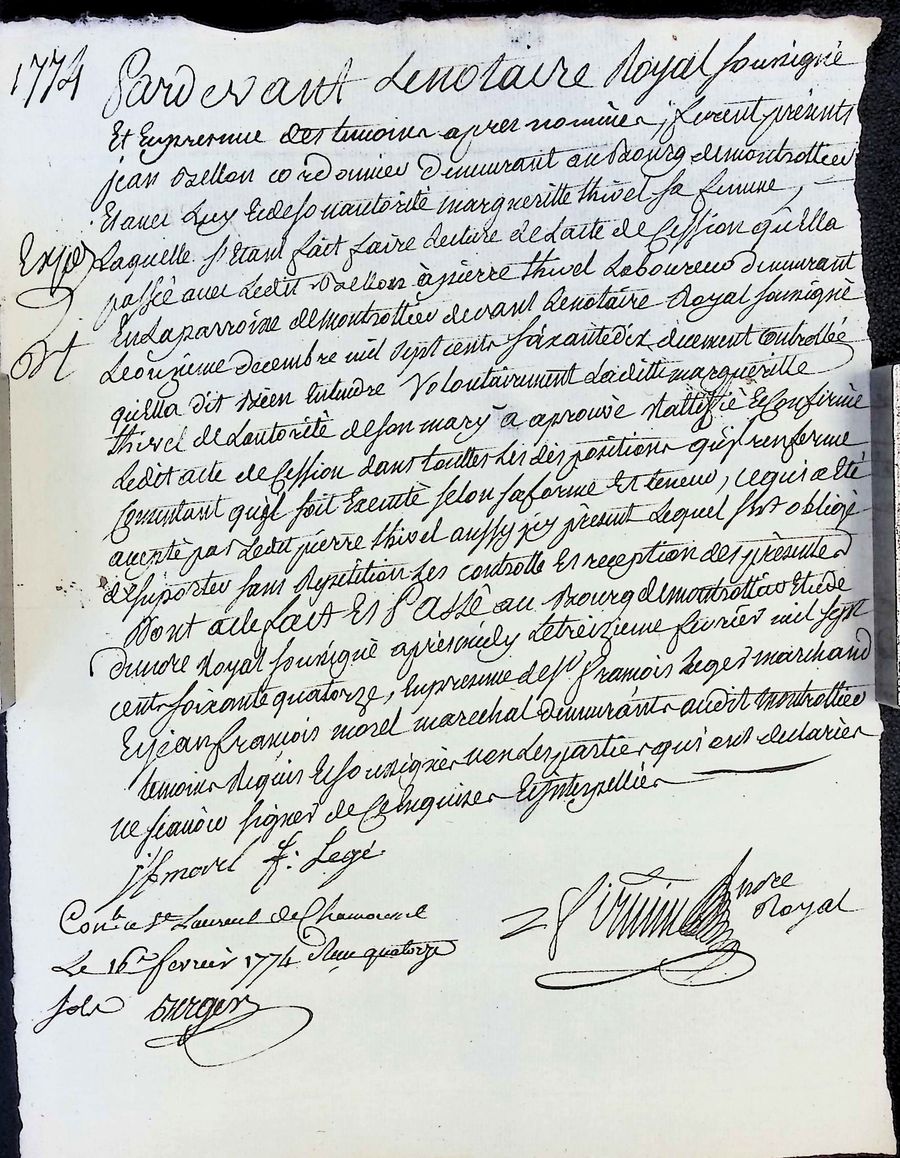 1774
Pardevant Lenotaire Royal soussigné
Et En presence des temoins apres nommés, furent présents
jean Bellon cordonnier demeurant au Bourg demontrottier
Et avec Luy Et de son autorité margueritte thivel sa femme,
Laquelle s'Etant fait faire Lecture de L'acte de Cession qu'Ella
Exped
passée avec Ledit Bellon à pierre thivel Laboureur demeurant
En La parroisse demontrottier devant Lenotaire Royal soussigné
Le onzieme decembre mil sept cents soixante dix duement controllée
qu'Ella dit Bien Entendre Volontairement Laditte margueritte
thivel de L'autorité de son mary a aprouvé Rattiffié Et Confirmé
Ledit acte de Cession dans touttes Les dispositions qu'il renferme
Consentant qu'il soit Executé selon sa forme Et teneur, ce qui a Eté
accepté par Ledit pierre thivel aussy jcy présent Lequel s'est obligé
de suporter sans Repétition Les controlle Et reception des présentes
Dont acte fait Et Passé au Bourg demontrottier Etude
dunore Royal soussigné aprèsmidy Le treizieme février mil sept
cents soixante quatorze, En presence de sr françois Leger marchand
Et jean françois morel marechal demeurants audit montrottier
temoins Requis Et soussignés non Les parties qui ont declarées
ne scavoir signer de Ce Enquises Et jnterpellées
jf morel f: Legé
Conlé a St Laurent de Chamousset
Le 16e fevrier 1774 Reçu quatorze
sols
nore
Royal